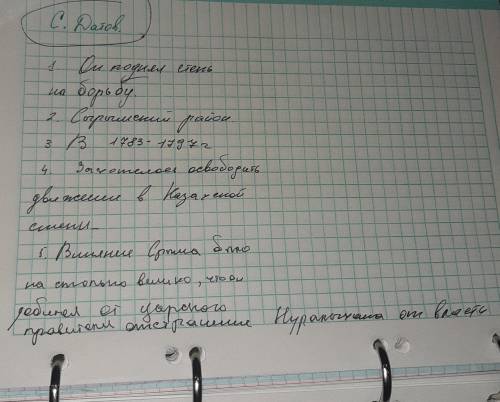 С. Датов.
1. Он поднял степь
на борьбу.
2. Сырымский район
3 В 1783-1797 г
4. Захотелось освободить
движение в Казахской
степи.
5. Влияние Срыма было
на столько велико, что он
добился от царского
правителя отстранение Нуралыхана от власти